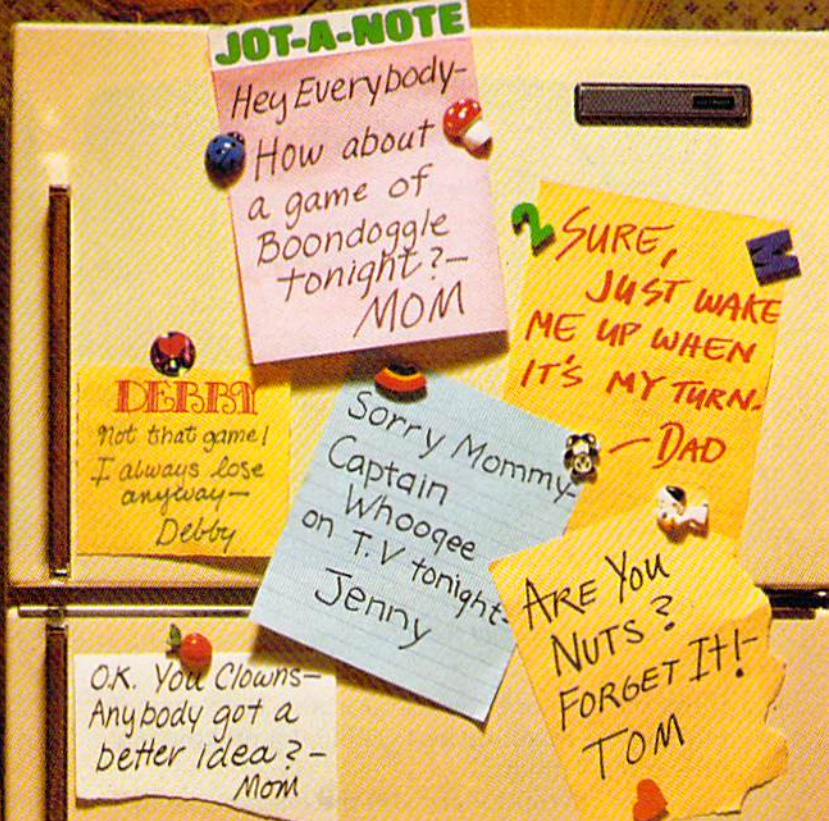 JOT-A-NOTE
Hey Everybody-
How about
a game of
Boondoggle
tonight?-
MOM
2
M
SURE,
JUST WAKE
ME UP WHEN
IT'S MY TURN.
- DAD
DEBBY
Not that game!
I always lose
anyway-
Debby
Sorry Mommy-
Captain
Whoogee
on T.V tonight-
Jenny
ARE YOU
NUTS?
FORGET IT!-
TOM
O.K. You Clowns-
Anybody got a
better idea?-
Mom